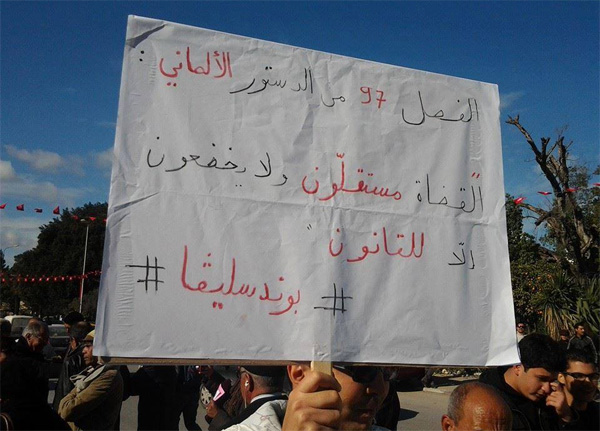 الفصل 97 من الدستور الألماني :
"القضاة مستقلّون ولا يخضعون
إلّا للقانون"
# بوندسليڨا #